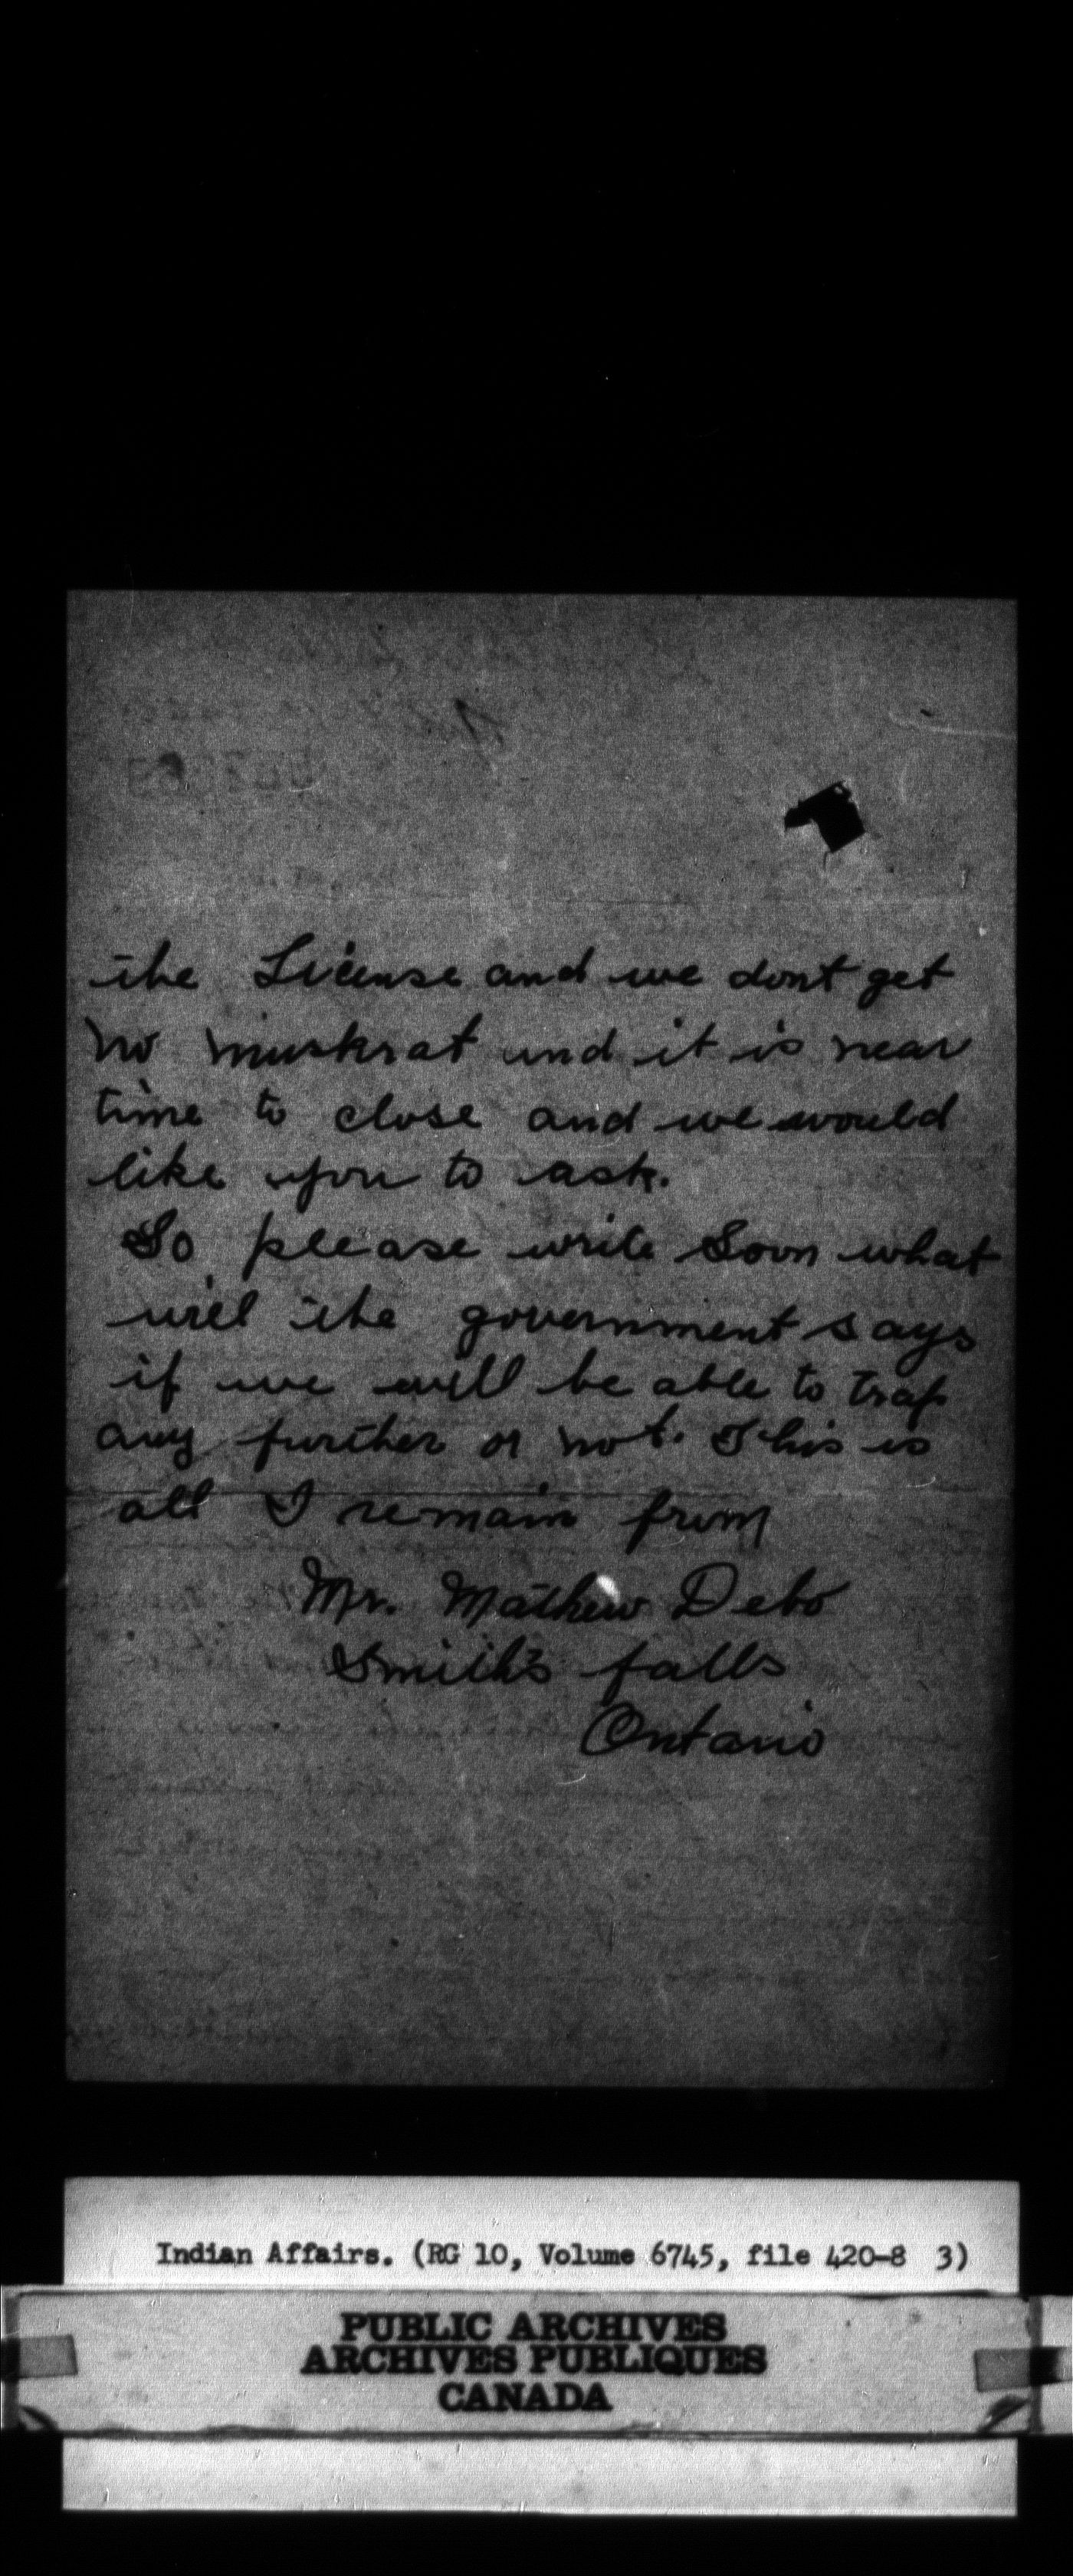 the License and we dont get
no muskrat and it is near
time to close and we would
like you to ask.
So please write Soon what
will the government says
if we will be able to trap
any further or not. This is
all I remain from
Mr. Mathew Debo
Smith's falls
Ontario
Indian Affairs. (RG 10, Volume 6745, file 420-8 3)
PUBLIC ARCHIVES
ARCHIVES PUBLIQUES
CANADA